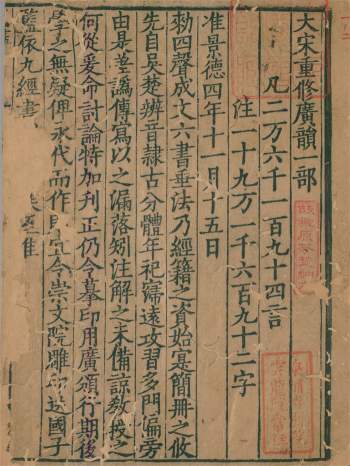 大宋重修廣韻一部
凡二万六千一百九十四言
注一十九万一千六百九十二字
准景德四年十一月十五日
勑四聲成文六書垂法乃經籍之資始寔簡冊之攸
先自吳楚辨音隷古分體年祀寖遠攻習多門偏旁
由是差譌傳寫以之漏落矧注解之未備諒教授之
何從爰命討論特加刊正仍令摹印用廣頒行期後
學之無疑俾永代而作則宜令崇文院雕印送國子
監依九經書